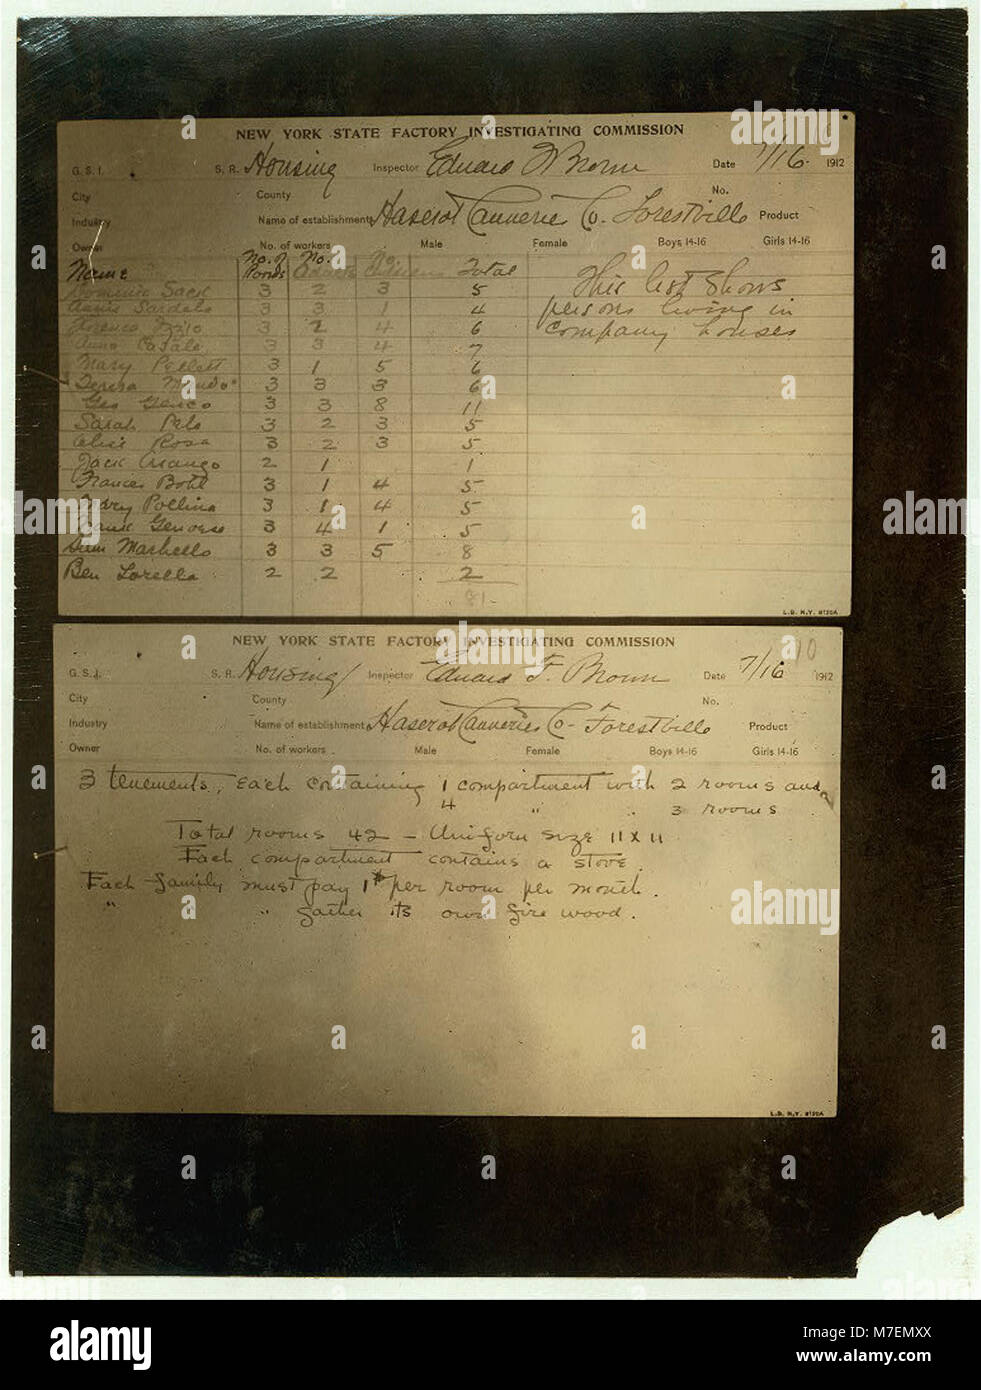 NEW YORK STATE FACTORY INVESTIGATING COMMISSION
G. S. I. S. R. Housing Inspector Edward F Brown Date 7/16 1912
City County No.
Industry Name of establishment Haserot Canneries Co. Forestville Product
Owner No. of workers Male Female Boys 14-16 Girls 14-16
Name No. of Rooms No. Adults No. Children Total This list shows
Dominick Sack 3 2 3 5
Annie Sardelo 3 3 1 4 persons living in
Florence Izzio 3 2 4 6 company houses
Anna Casale 3 3 4 7
Mary Pellett 3 1 5 6
Teresa 3 3 3 6
Geo Genco 3 3 8 11
Sarah Pelo 3 2 3 5
Rosa 3 2 3 5
Jack 2 1 1
Frances Bohl 3 1 4 5
Mary Pollina 3 1 4 5
Frank Genovese 3 4 1 5
Marhello 3 3 5 8
Ben Lorella 2 2 2
81
L.B. N.Y. 8120A
NEW YORK STATE FACTORY INVESTIGATING COMMISSION
10
G. S. I. S. R. Housing Inspector Edward F. Brown Date 7/16 1912
City County No.
Industry Name of establishment Haserot Canneries Co- Forestville Product
Owner No. of workers Male Female Boys 14-16 Girls 14-16
3 tenements, Each containing 1 compartment with 2 rooms and
4 " " 3 rooms
Total rooms 42 - Uniform size 11 x 11
Each compartment contains a stove.
Each family must pay 1$ per room per month.
" " gather its own fire wood.
L.B. N.Y. 8120A
alamy
Image ID: M7EMXX
www.alamy.com